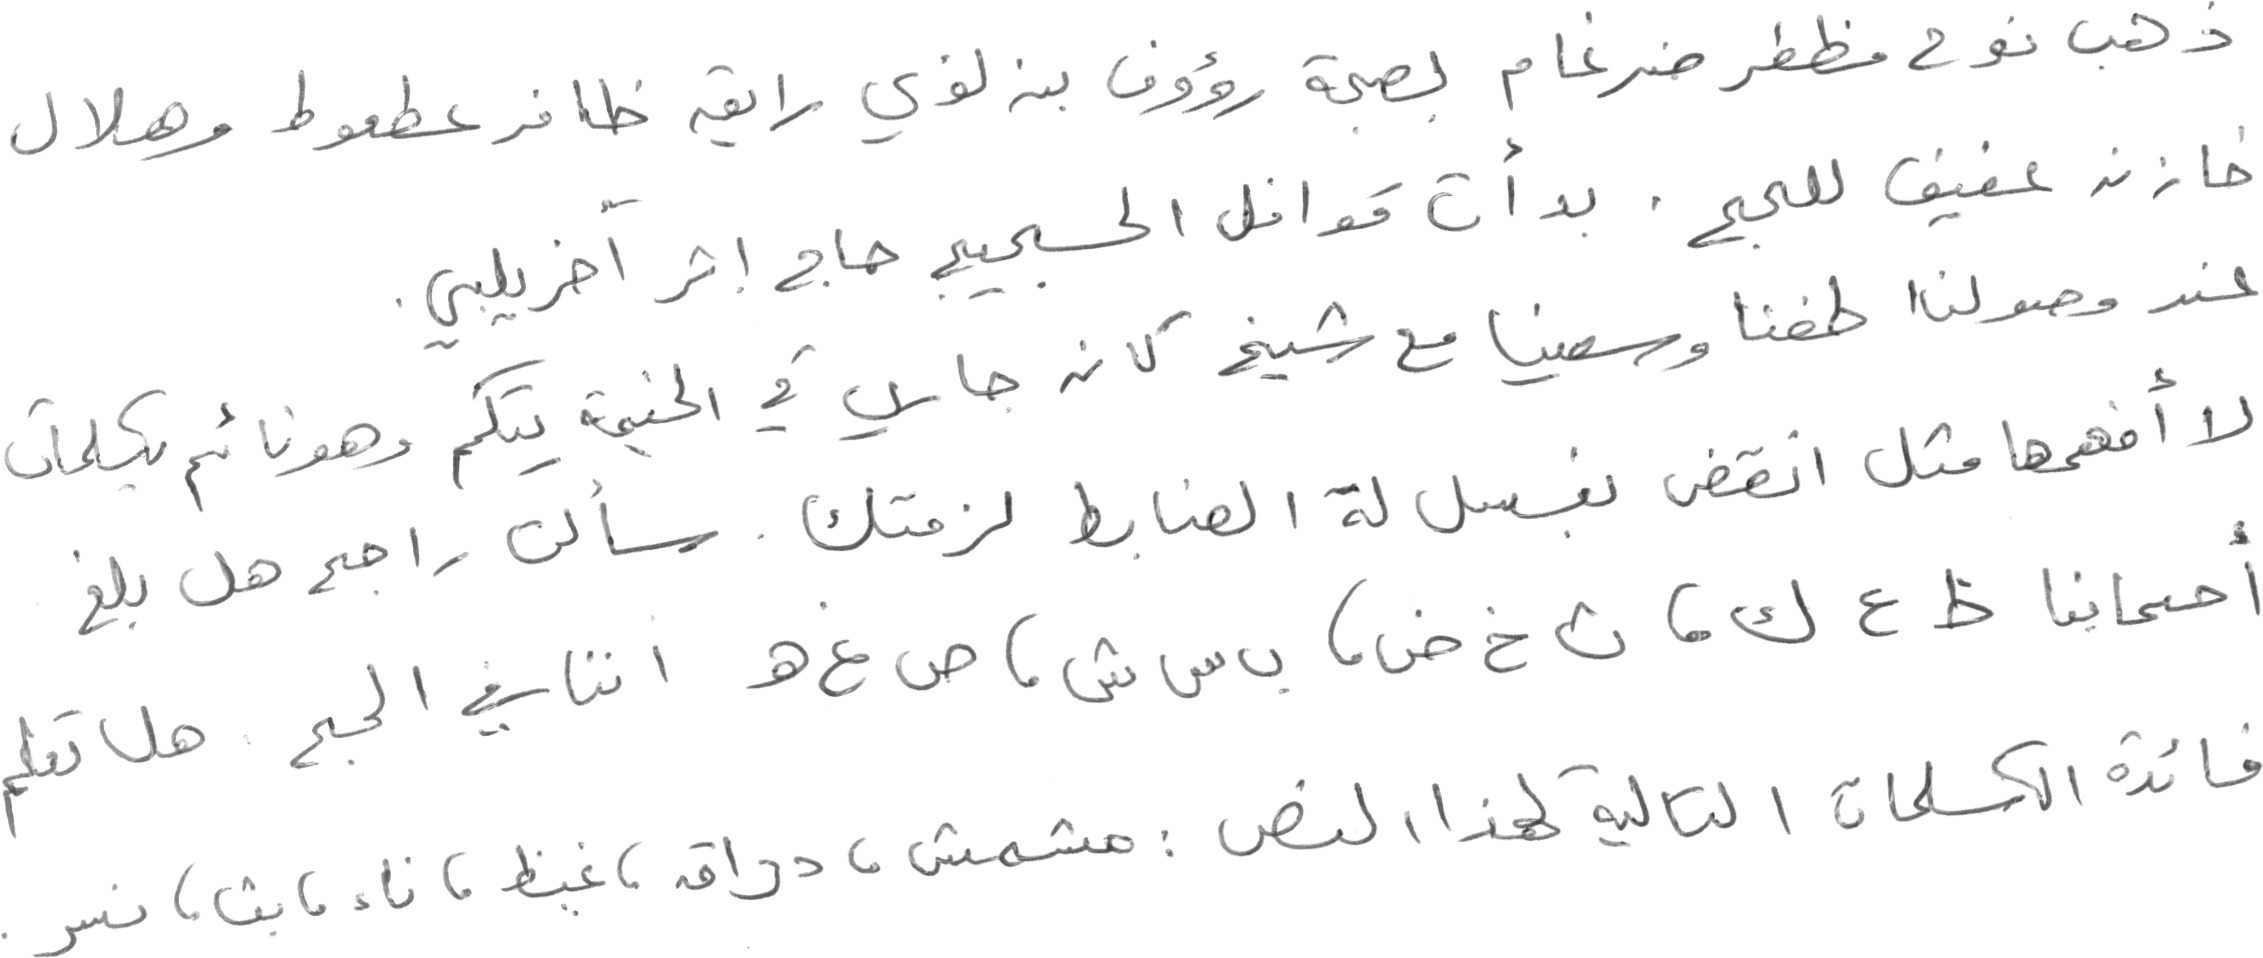 ذهب نوح مظفر ضرغام بصحبة رؤوف بن لؤي رايق ظافر عطعوط وهلال
خازن عفيف للحج . بدأت قوافل الحجيج حاج إثر آخر يلبي .
عند وصولنا طفنا وسعينا مع شيخ كان جالس في الخيمة يتكلم وهو نائم بكلمات
لا أفهمها مثل انقض بغسل لة الضابط لزمتك . سألت راجح هل بلغ
أصحابنا ظ ع ك ، ث خ ض ، ب س ش ، ص غ ه اننا في الحج . هل تعلم
فائدة الكلمات التالية لهذا النص : مشمش ، دراق ، غيظ ، ناء ، بث ، نسر .